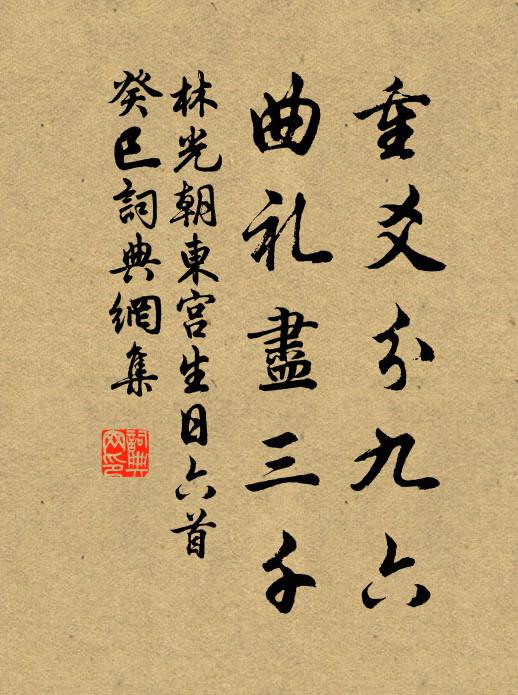 重爻分九六
曲礼盡三千
林光朝東宮生日六首
癸巳詞典網集
詞典
网印